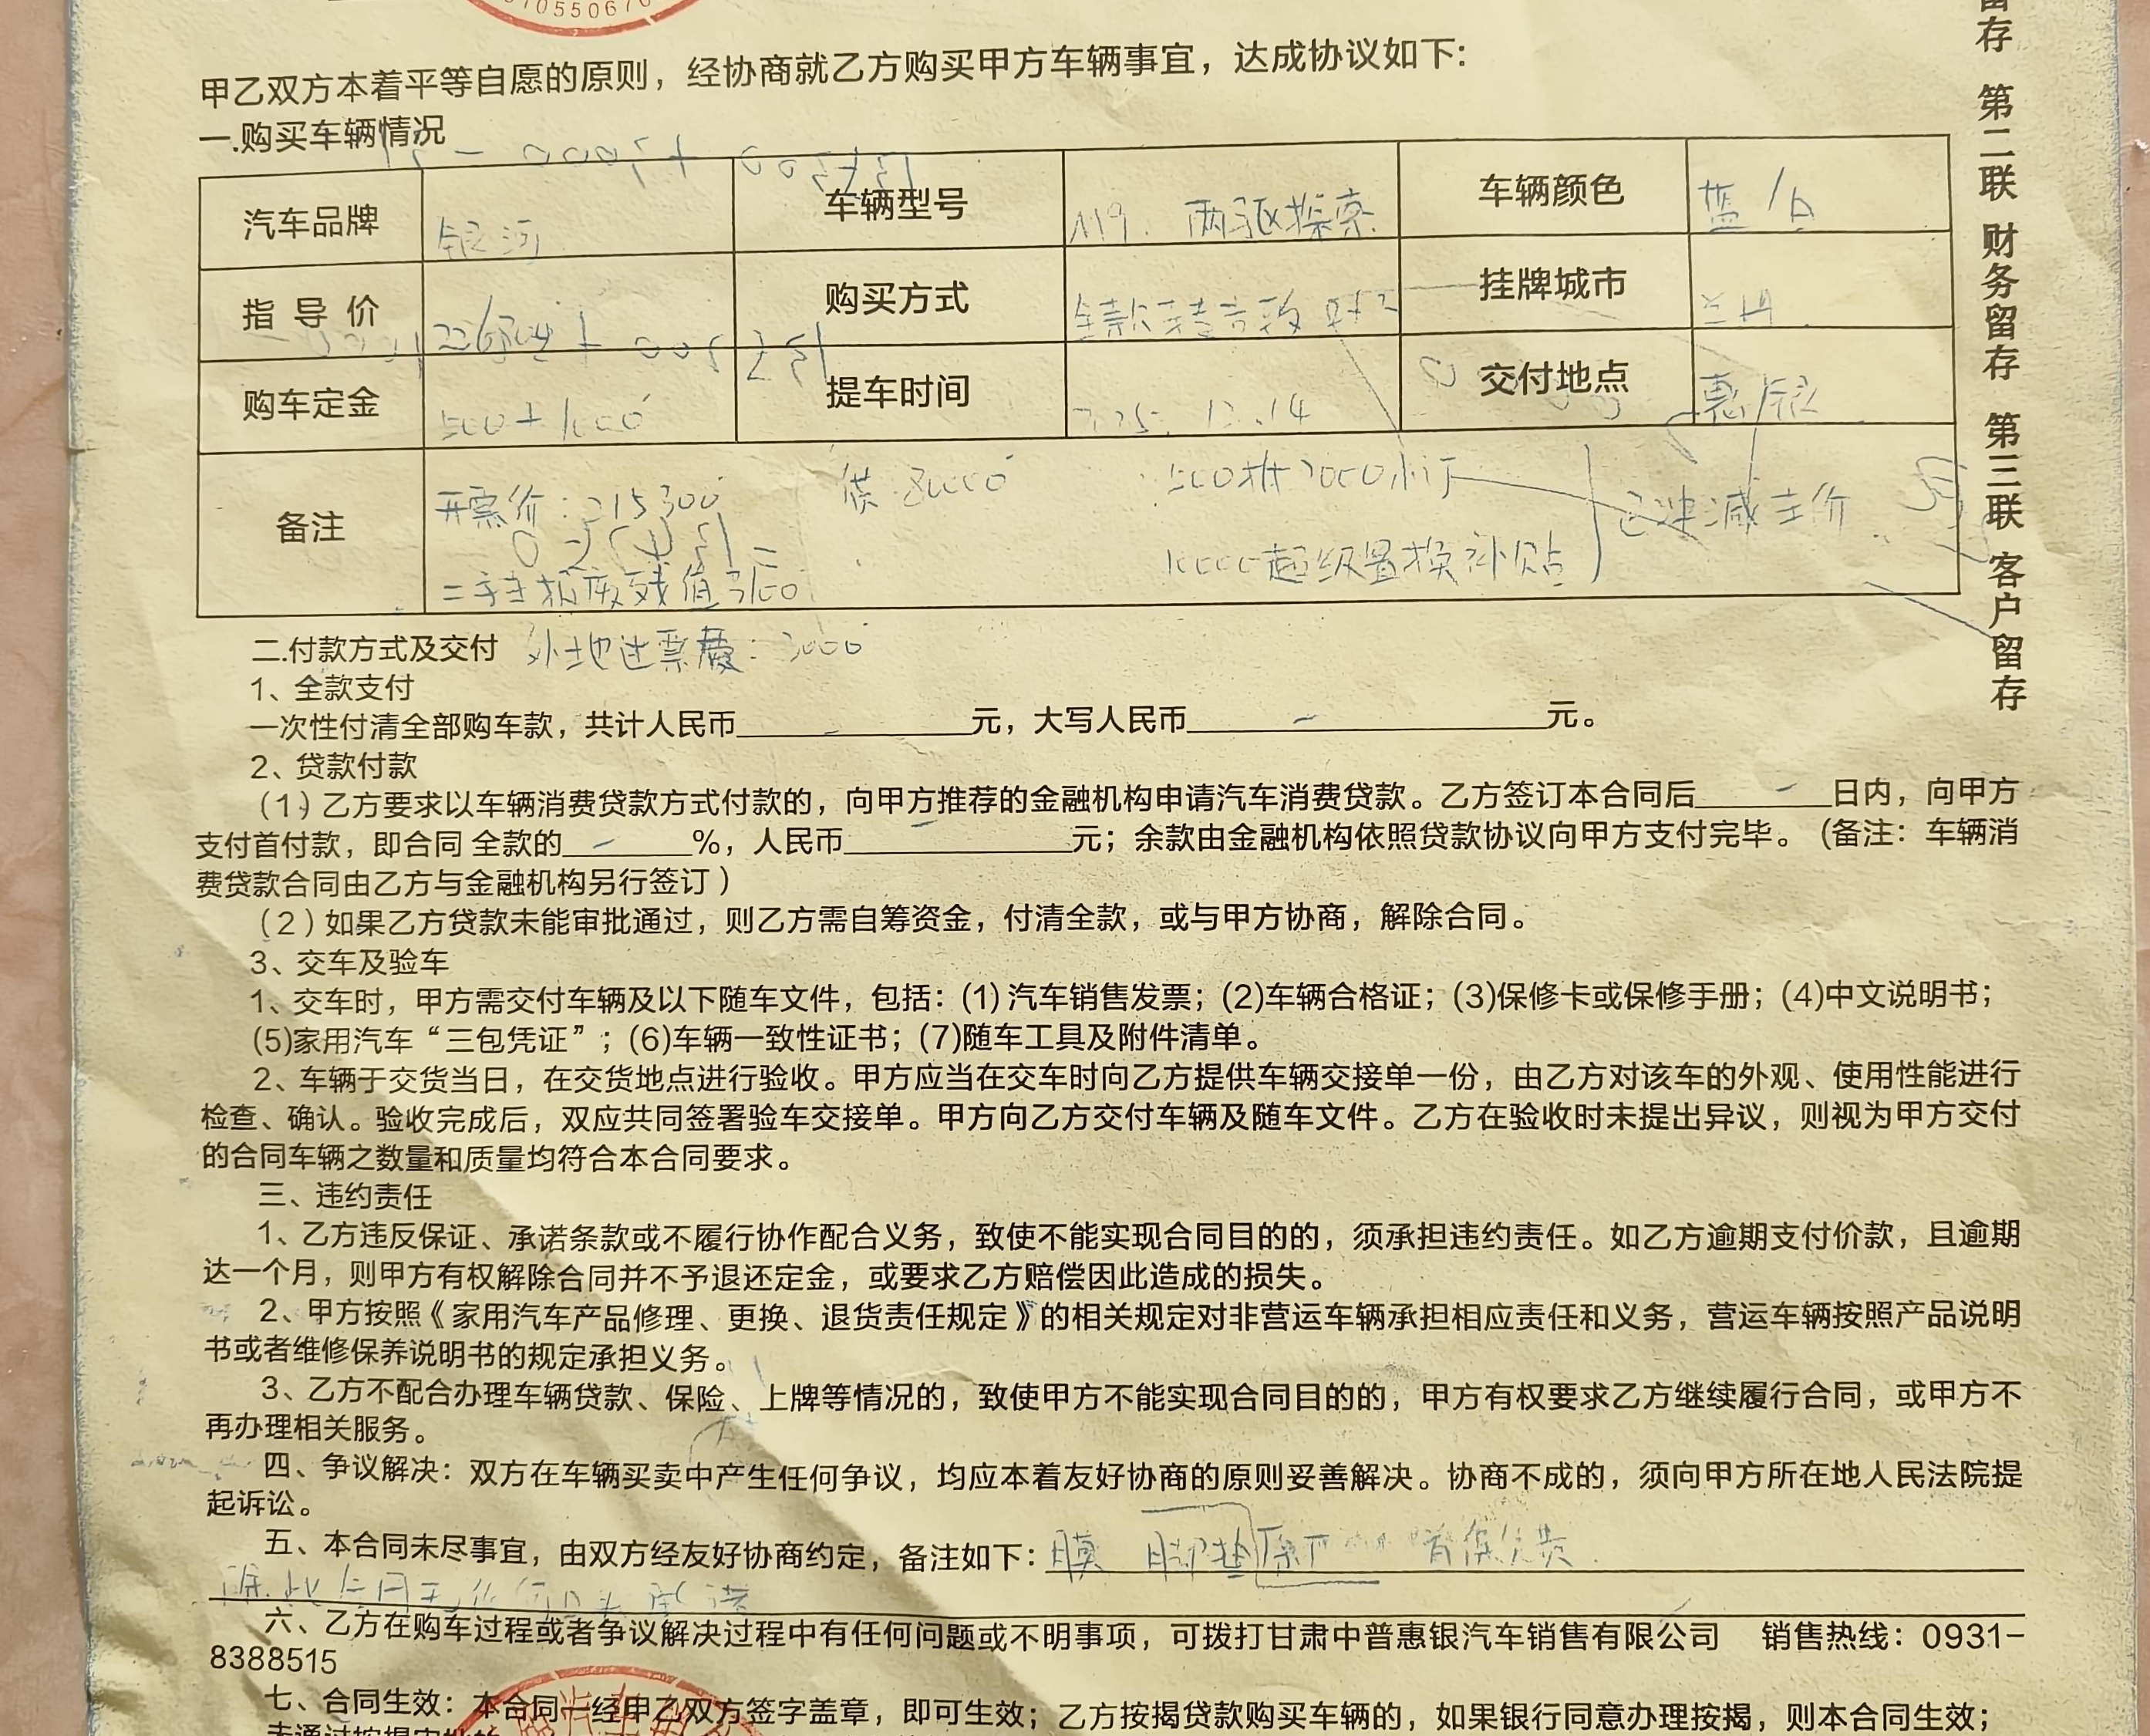 甲乙双方本着平等自愿的原则，经协商就乙方购买甲方车辆事宜，达成协议如下：
一.购买车辆情况
汽车品牌 银河 车辆型号 M9. 两驱探索 车辆颜色 蓝/白
指导价 购买方式 全款 挂牌城市 兰州
购车定金 500+1000 提车时间 12.14 交付地点 惠银
备注 开票价：215300 500抵2000小订 已冲减车价
超级置换补贴
外地进票费：3000
二.付款方式及交付
1、全款支付
一次性付清全部购车款，共计人民币 元，大写人民币 元。
2、贷款付款
（1）乙方要求以车辆消费贷款方式付款的，向甲方推荐的金融机构申请汽车消费贷款。乙方签订本合同后 日内，向甲方
支付首付款，即合同 全款的 %，人民币 元；余款由金融机构依照贷款协议向甲方支付完毕。（备注：车辆消
费贷款合同由乙方与金融机构另行签订）
（2）如果乙方贷款未能审批通过，则乙方需自筹资金，付清全款，或与甲方协商，解除合同。
3、交车及验车
1、交车时，甲方需交付车辆及以下随车文件，包括：(1) 汽车销售发票；(2)车辆合格证；(3)保修卡或保修手册；(4)中文说明书；
(5)家用汽车“三包凭证”；(6)车辆一致性证书；(7)随车工具及附件清单。
2、车辆于交货当日，在交货地点进行验收。甲方应当在交车时向乙方提供车辆交接单一份，由乙方对该车的外观、使用性能进行
检查、确认。验收完成后，双应共同签署验车交接单。甲方向乙方交付车辆及随车文件。乙方在验收时未提出异议，则视为甲方交付
的合同车辆之数量和质量均符合本合同要求。
三、违约责任
1、乙方违反保证、承诺条款或不履行协作配合义务，致使不能实现合同目的的，须承担违约责任。如乙方逾期支付价款，且逾期
达一个月，则甲方有权解除合同并不予退还定金，或要求乙方赔偿因此造成的损失。
2、甲方按照《家用汽车产品修理、更换、退货责任规定》的相关规定对非营运车辆承担相应责任和义务，营运车辆按照产品说明
书或者维修保养说明书的规定承担义务。
3、乙方不配合办理车辆贷款、保险、上牌等情况的，致使甲方不能实现合同目的的，甲方有权要求乙方继续履行合同，或甲方不
再办理相关服务。
四、争议解决：双方在车辆买卖中产生任何争议，均应本着友好协商的原则妥善解决。协商不成的，须向甲方所在地人民法院提
起诉讼。
五、本合同未尽事宜，由双方经友好协商约定，备注如下：膜 脚垫 原厂 首保免费
除此合同无任何口头承诺
六、乙方在购车过程或者争议解决过程中有任何问题或不明事项，可拨打甘肃中普惠银汽车销售有限公司 销售热线：0931-
8388515
七、合同生效：本合同一经甲乙双方签字盖章，即可生效；乙方按揭贷款购买车辆的，如果银行同意办理按揭，则本合同生效；
留存 第二联 财务留存 第三联 客户留存